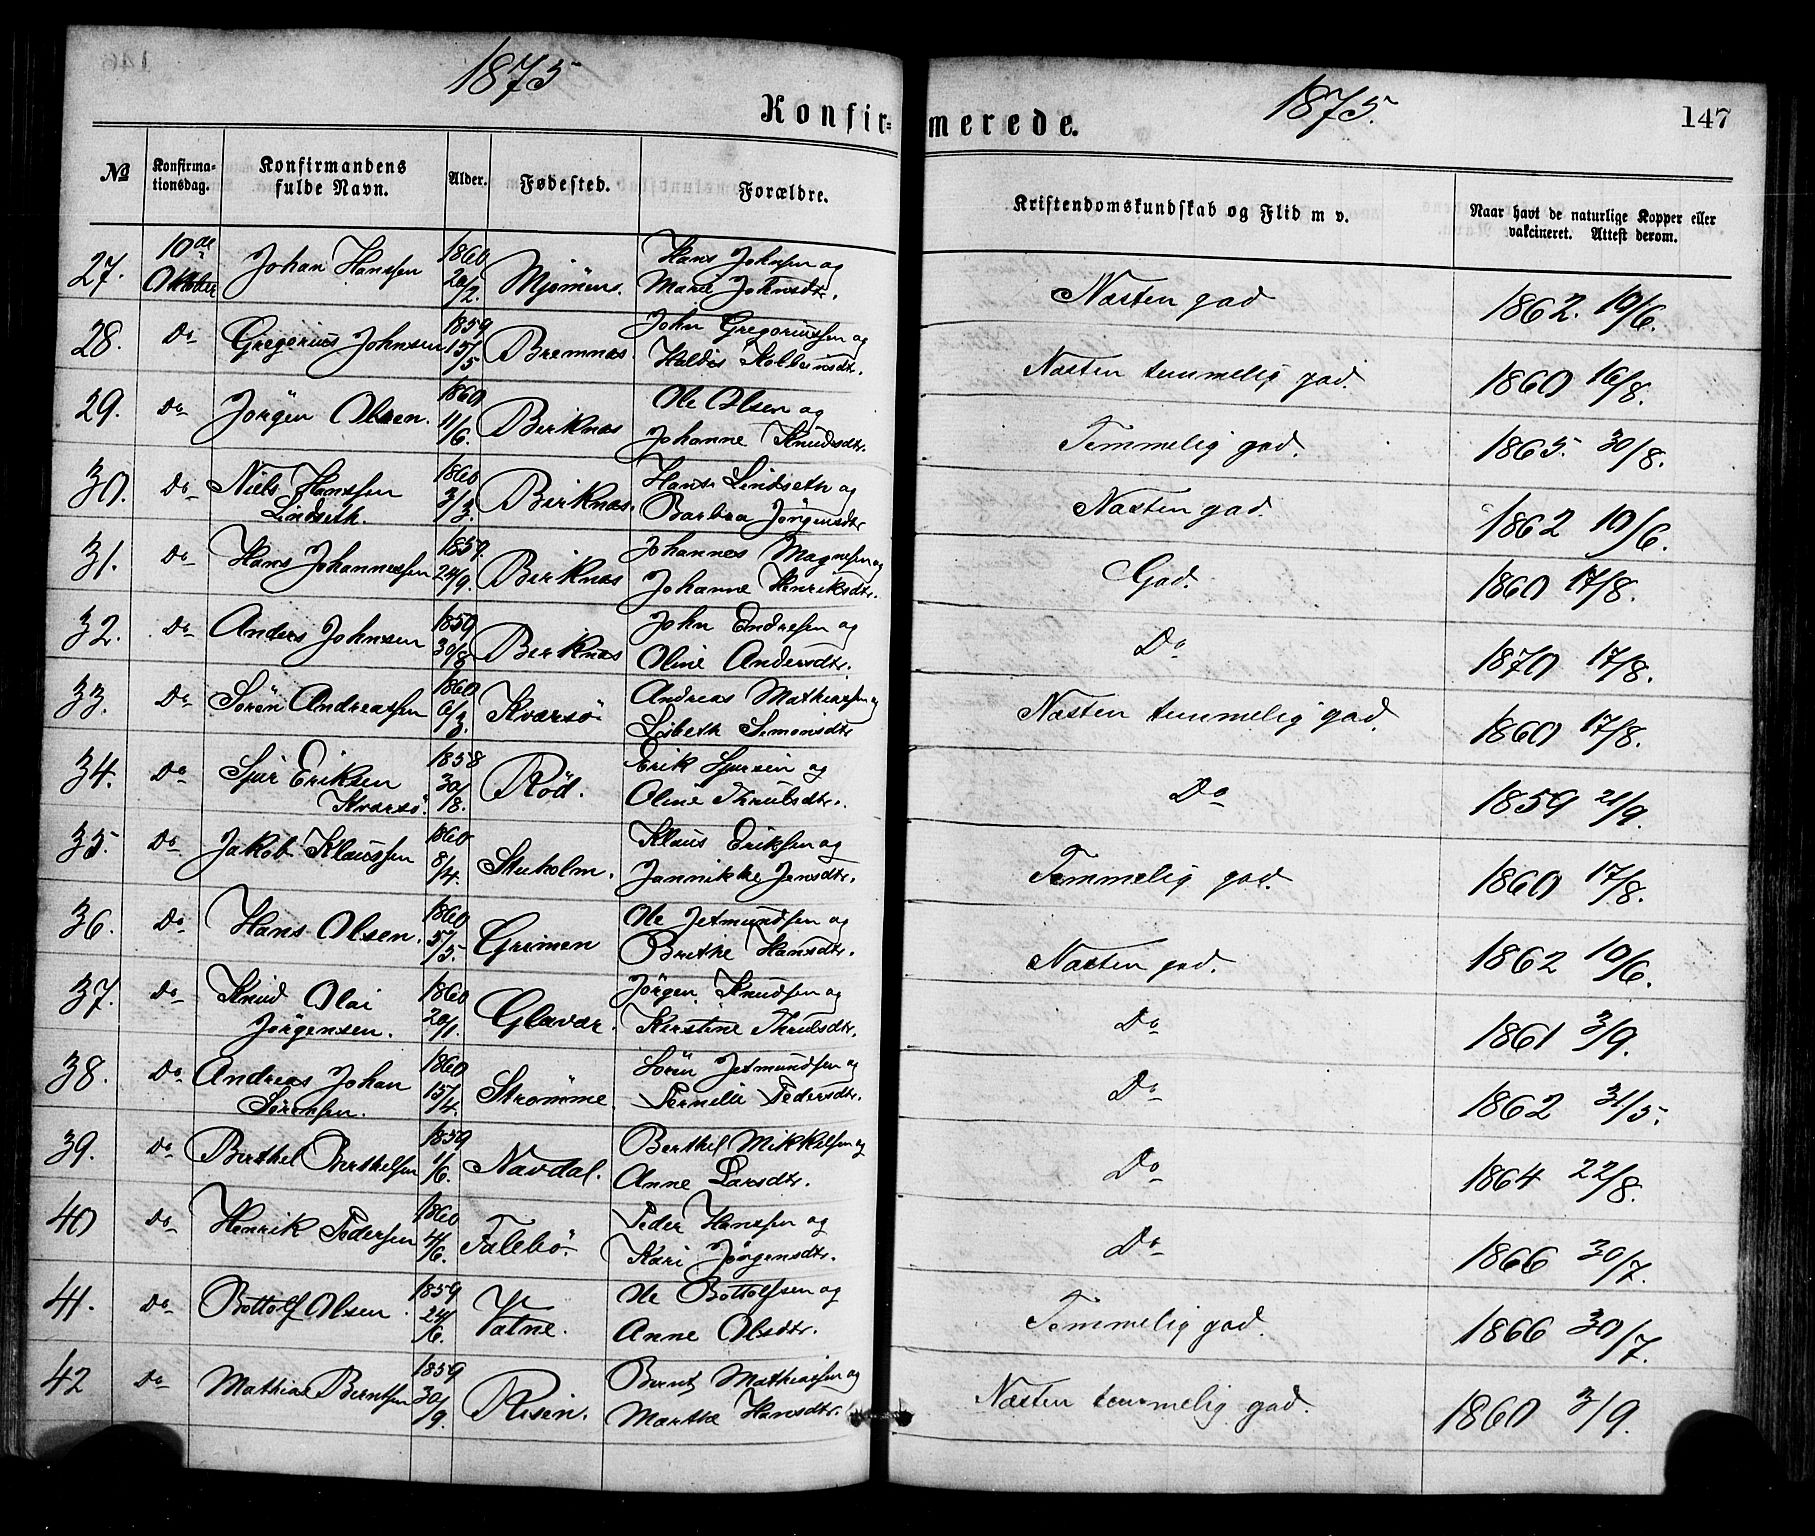 1875
1875.
147
Konfir=
merede.
№
Konfirma-
tionsdag.
Konfirmandens
fulde Navn.
Alder.
Fødested.
Forældre.
Kristendomskundskab og Flid m v.
Naar havt de naturlige Kopper eller
vakcineret. Attest derom.
27. 10de Oktober Johan Hanssen 1860 20/2. Mjømens. Hans Johnsen og
Marie Johnsdtr. Næsten god 1862. 10/6.
28. Do Gregorius Johnsen 1859 15/5 Bremnæs. John Gregoriussen og
Haldis Kolbensdtr. Næsten temmelig god. 1860 16/8.
29. Do Jørgen Olsen. 1860 11/6. Birknæs Ole Olsen og
Johanne Knudsdtr. Temmelig god. 1865. 30/8.
30. Do Niels Hanssen 1860 3/3. Birknæs. Hans Lindseth og
Lindseth. Barbra Jørgensdtr Næsten god. 1862 10/6.
31. Do Hans Johannessen 1859. 24/9. Birknæs Johannes Magnesen og
Johanne Henriksdtr. God. 1860 17/8.
32. Do Anders Johnsen 1859 30/8 Birknæs John Endresen og
Oline Andersdtr. Do 1870 17/8.
33. Do Søren Andreassen 1860 6/3. Kværsø Andreas Mathiassen og
Lisbeth Simonsdtr Næsten temmelig god. 1860 17/8.
34. Do Sjur Eriksen 1858 30/18. Rød. Erik Sjursen og
Kværsø. Oline Thrulsdtr. Do 1859 21/9.
35. Do Jakob Klaussen 1860 8/4. Stuholm. Klaus Eriksen og
Jannikke Jensdtr. Temmelig god. 1860 17/8.
36. Do Hans Olsen. 1860 5/5. Grimen Ole Jetmundsen og
Brithe Hansdtr. Næsten god. 1862 10/6.
37. Do Knud Olai 1860 20/1. Glavær. Jørgen Knudsen og
Jørgensen. Kerstine Thrulsdtr. Do 1861 3/9.
38. Do Andreas Johan 1860 15/4. Strømme. Søren Jetmundsen og
Sørensen. Pernille Pedersdtr. Do 1862 31/5.
39. Do Berthel Berthelsen 1859 1/6. Navdal. Berthel Mikkelsen og
Anne Larsdtr. Do 1864 22/8.
40 Do Henrik Pedersen 1860 4/6. Talebø. Peder Hanssen og
Kari Jørgensdtr. Do 1866 30/7.
41. Do Bottolf Olsen 1859 24/6. Vatne. Ole Bottolfsen og
Anne Olsdtr. Temmelig god. 1866 30/7.
42 Do Mathias Berntsen 1859 30/9. Risen. Bernt Mathiassen og
Marthe Hansdtr. Næsten temmelig god. 1860 3/9.